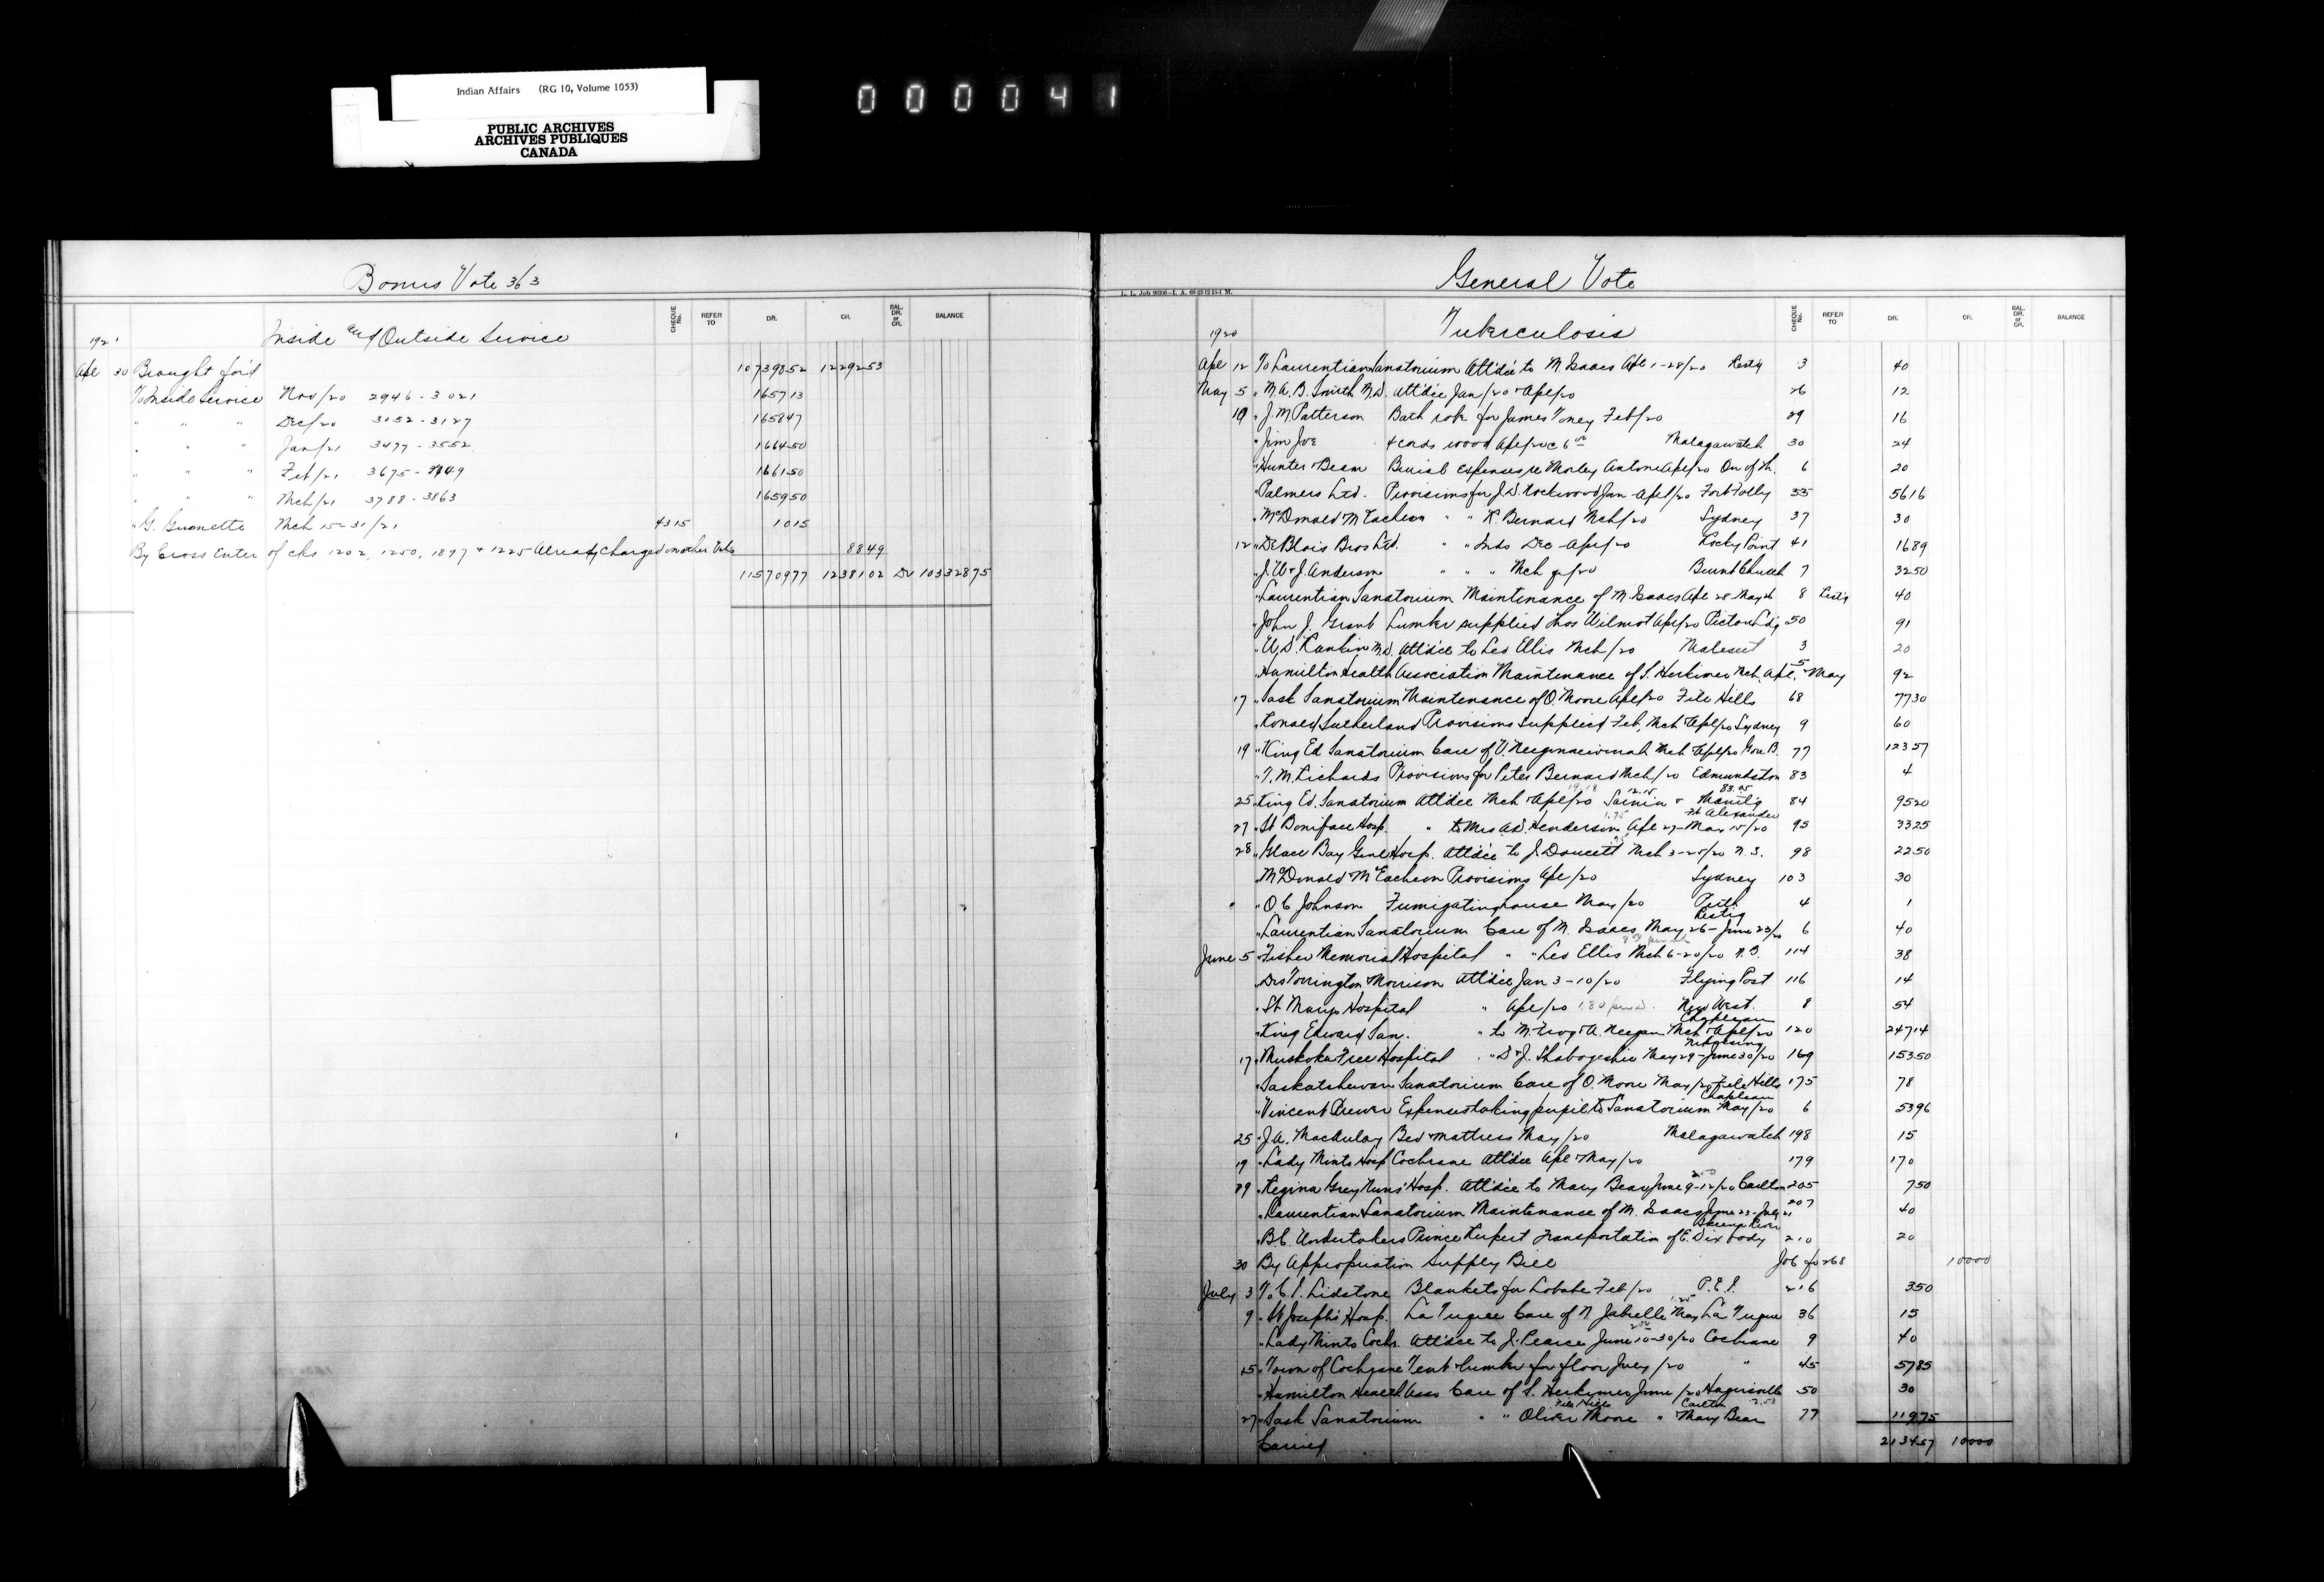 Indian Affairs (RG 10, Volume 1053)
PUBLIC ARCHIVES
ARCHIVES PUBLIQUES
CANADA
000041
Bonus Vote 363
CHEQUE No. REFER TO DR. CR. BAL. DR. or CR. BALANCE
192 Inside and Outside Service
Apl 30 Brought for'd 10739852 1229253
To Inside Service Nov/20 2946-3021 165713
" " " Dec/20 3052-3127 165847
" " " Jan/21 3477-3552 166450
" " " Feb/21 3675- 166150
" " " Mch/21 3788-3863 165950
" G. Mch 15-31/21 4315 1015
By Cross Enter of chs 1202, 1250, 1897 + 1225 Already charged another Vote 8849
11570977 1238102 Dr 10332875
General Vote
CHEQUE No. REFER TO DR. CR. BAL. DR. or CR. BALANCE
1920 Tuberculosis
Apl 12 To Laurentian Sanatorium Att'dce to M. Isaacs Apl 1-28/20 Restig 3 40
May 5 " M.A.B. Smith M.D. att'dce Jan/20 + Apl/20 26 12
10 " J.M. Patterson Bath robe for James Toney Feb/20 29 16
" Jim Joe 4 cords wood Apl/20 @ 6 00 Malagawatch 30 24
" Hunter Beam Burial Expenses re Morley Antone Apl/20 On of Th. 6 20
" Palmers Ltd. Provisions for J.D. Rockwood Jan-Apl/20 Fort Folly 35 5616
" McDonald McEachern " " K. Bernard Mch/20 Sydney 37 30
12 " DeBlois Bros Ltd. " " Inds Dec-Apl/20 Rocky Point 41 1689
" J.W. + J. Anderson " " " Mch /20 Burnt Church 7 3250
" Laurentian Sanatorium Maintenance of M. Isaacs Apl 28 May 8 Restig 40
" John J. Grant Lumber supplied Thos Wilmot Apl/20 Pictou Ldg 50 91
" A.D. Rankin M.D. Att'dce to Leo Ellis Mch/20 Maliseet 3 20
" Hamilton Health Association Maintenance of S. Herkimer Mch, Apl, + May 5 92
17 " Sask Sanatorium Maintenance of O. Moore Apl/20 File Hills 68 7730
" Ronald Sutherland Provisions supplied Feb, Mch + Apl/20 Sydney 9 60
19 " King Ed Sanatorium Care of Mch + Apl/20 77 12357
" T.M. Richards Provisions for Peter Bernard Mch/20 Edmundston 83 4
25 " King Ed. Sanatorium Att'dce Mch + Apl/20 Sarnia + 84 9520
27 " St Boniface Hosp. " to Mrs Henderson Apl 27-May 15/20 Ft Alexander 95 3325
28 " Glace Bay Genl Hosp. Att'dce to J. Doucett Mch 3-25/20 N.S. 98 2250
" McDonald McEachern Provisions Apl/20 Sydney 103 30
" O.C. Johnson Fumigating house May/20 4 1
" Laurentian Sanatorium Care of M. Isaacs May 26-June 23/20 Restig 6 40
June 5 " Fisher Memorial Hospital " " Leo Ellis Mch 6-20/20 N.B. 114 38
" Drs Torrington + Morrison Att'dce Jan 3-10/20 Flying Post 116 14
" St Marys Hospital " Apl/20 New West. 8 54
" King Edward San. " to M. + A. Mch + Apl/20 Chapleau 120 24714
17 " Muskoka Free Hospital " " D + J. Shabogeshic May 29-June 30/20 Nipissing 169 15350
" Saskatchewan Sanatorium Care of O. Moore May/20 File Hills 175 78
" Vincent Brewer Expenses taking pupil to Sanatorium May/20 Chapleau 6 5396
25 " J.A. MacAulay Bed + mattress May/20 Malagawatch 198 15
19 " Lady Minto Hosp Cochrane Att'dce Apl + May/20 179 170
29 " Regina Grey Nuns' Hosp. Att'dce to Mary Bear June 9-12/20 Carlton 205 750
" Laurentian Sanatorium Maintenance of M. Isaacs June 23-July 21 207 40
" B.C. Undertakers Prince Rupert Transportation of E. Dix body Skeena River 210 20
30 By Appropriation Supply Bill Job fo 268 10000
July 3 To C.P. Lidstone Blankets for Labobe Feb/20 P.E.I. 216 350
9 " St Joseph's Hosp. La Tuque Care of N. Jabrelle May La Tuque 36 15
" Lady Minto Coch. Att'dce to J. Pearce June 10-30/20 Cochrane 9 40
15 " Town of Cochrane Tent + lumber for floor July/20 " 45 5785
" Hamilton Health Assn Care of S. Herkymer June/20 Hagersville 50 30
27 " Sask Sanatorium " " Oliver Moore File Hills " Mary Bear Carlton 77 11975
Carried 213457 10000